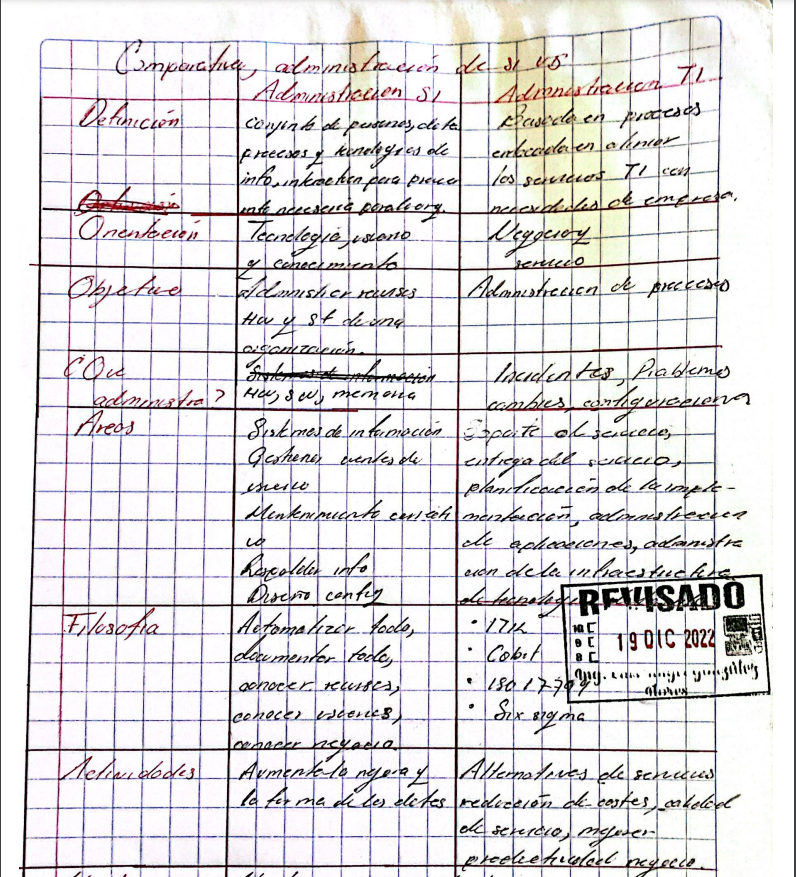 Comparativa, administración de SI vs
Administracion SI
Administracion TI
Definición
conjunto de personas, datos
procesos y tecnologías de
info, interactúan para
info necesaria para la org.
Basada en procesos
enfocada en alinear
los servicios TI con
necesidades de empresa.
Orientación
Tecnologia, usuario
y conocimiento
Negocio y
servicio
Objetivo
Administrar recursos
HW y de una
organización.
Administracion de procesos
¿Que
administra?
Sistemas de información
HW, SW, memoria
Incidentes, Problemas
cambios, configuraciones
Areas
Sistemas de información
Gestionar cuentas de
usuario
Mantenimiento correcti
vo
Respaldar info
Diseño config
Soporte al servicio,
entrega del servicio,
planificación de la imple-
mentación, administracion
de aplicaciones, administra
cion de la infraestructura
de tecnologia
REVISADO
19 DIC 2022
Ing. Luis
Filosofia
Automatizar todo,
documentar todo,
conocer recursos,
conocer usuarios,
conocer negocio.
• ITIL
• Cobit
• ISO 17799
• Six sigma
Actividades
Aumenta la y
la forma de los datos
Alternativas de servicios
reducción de costes, calidad
de servicio, mejorar
productividad negocio.